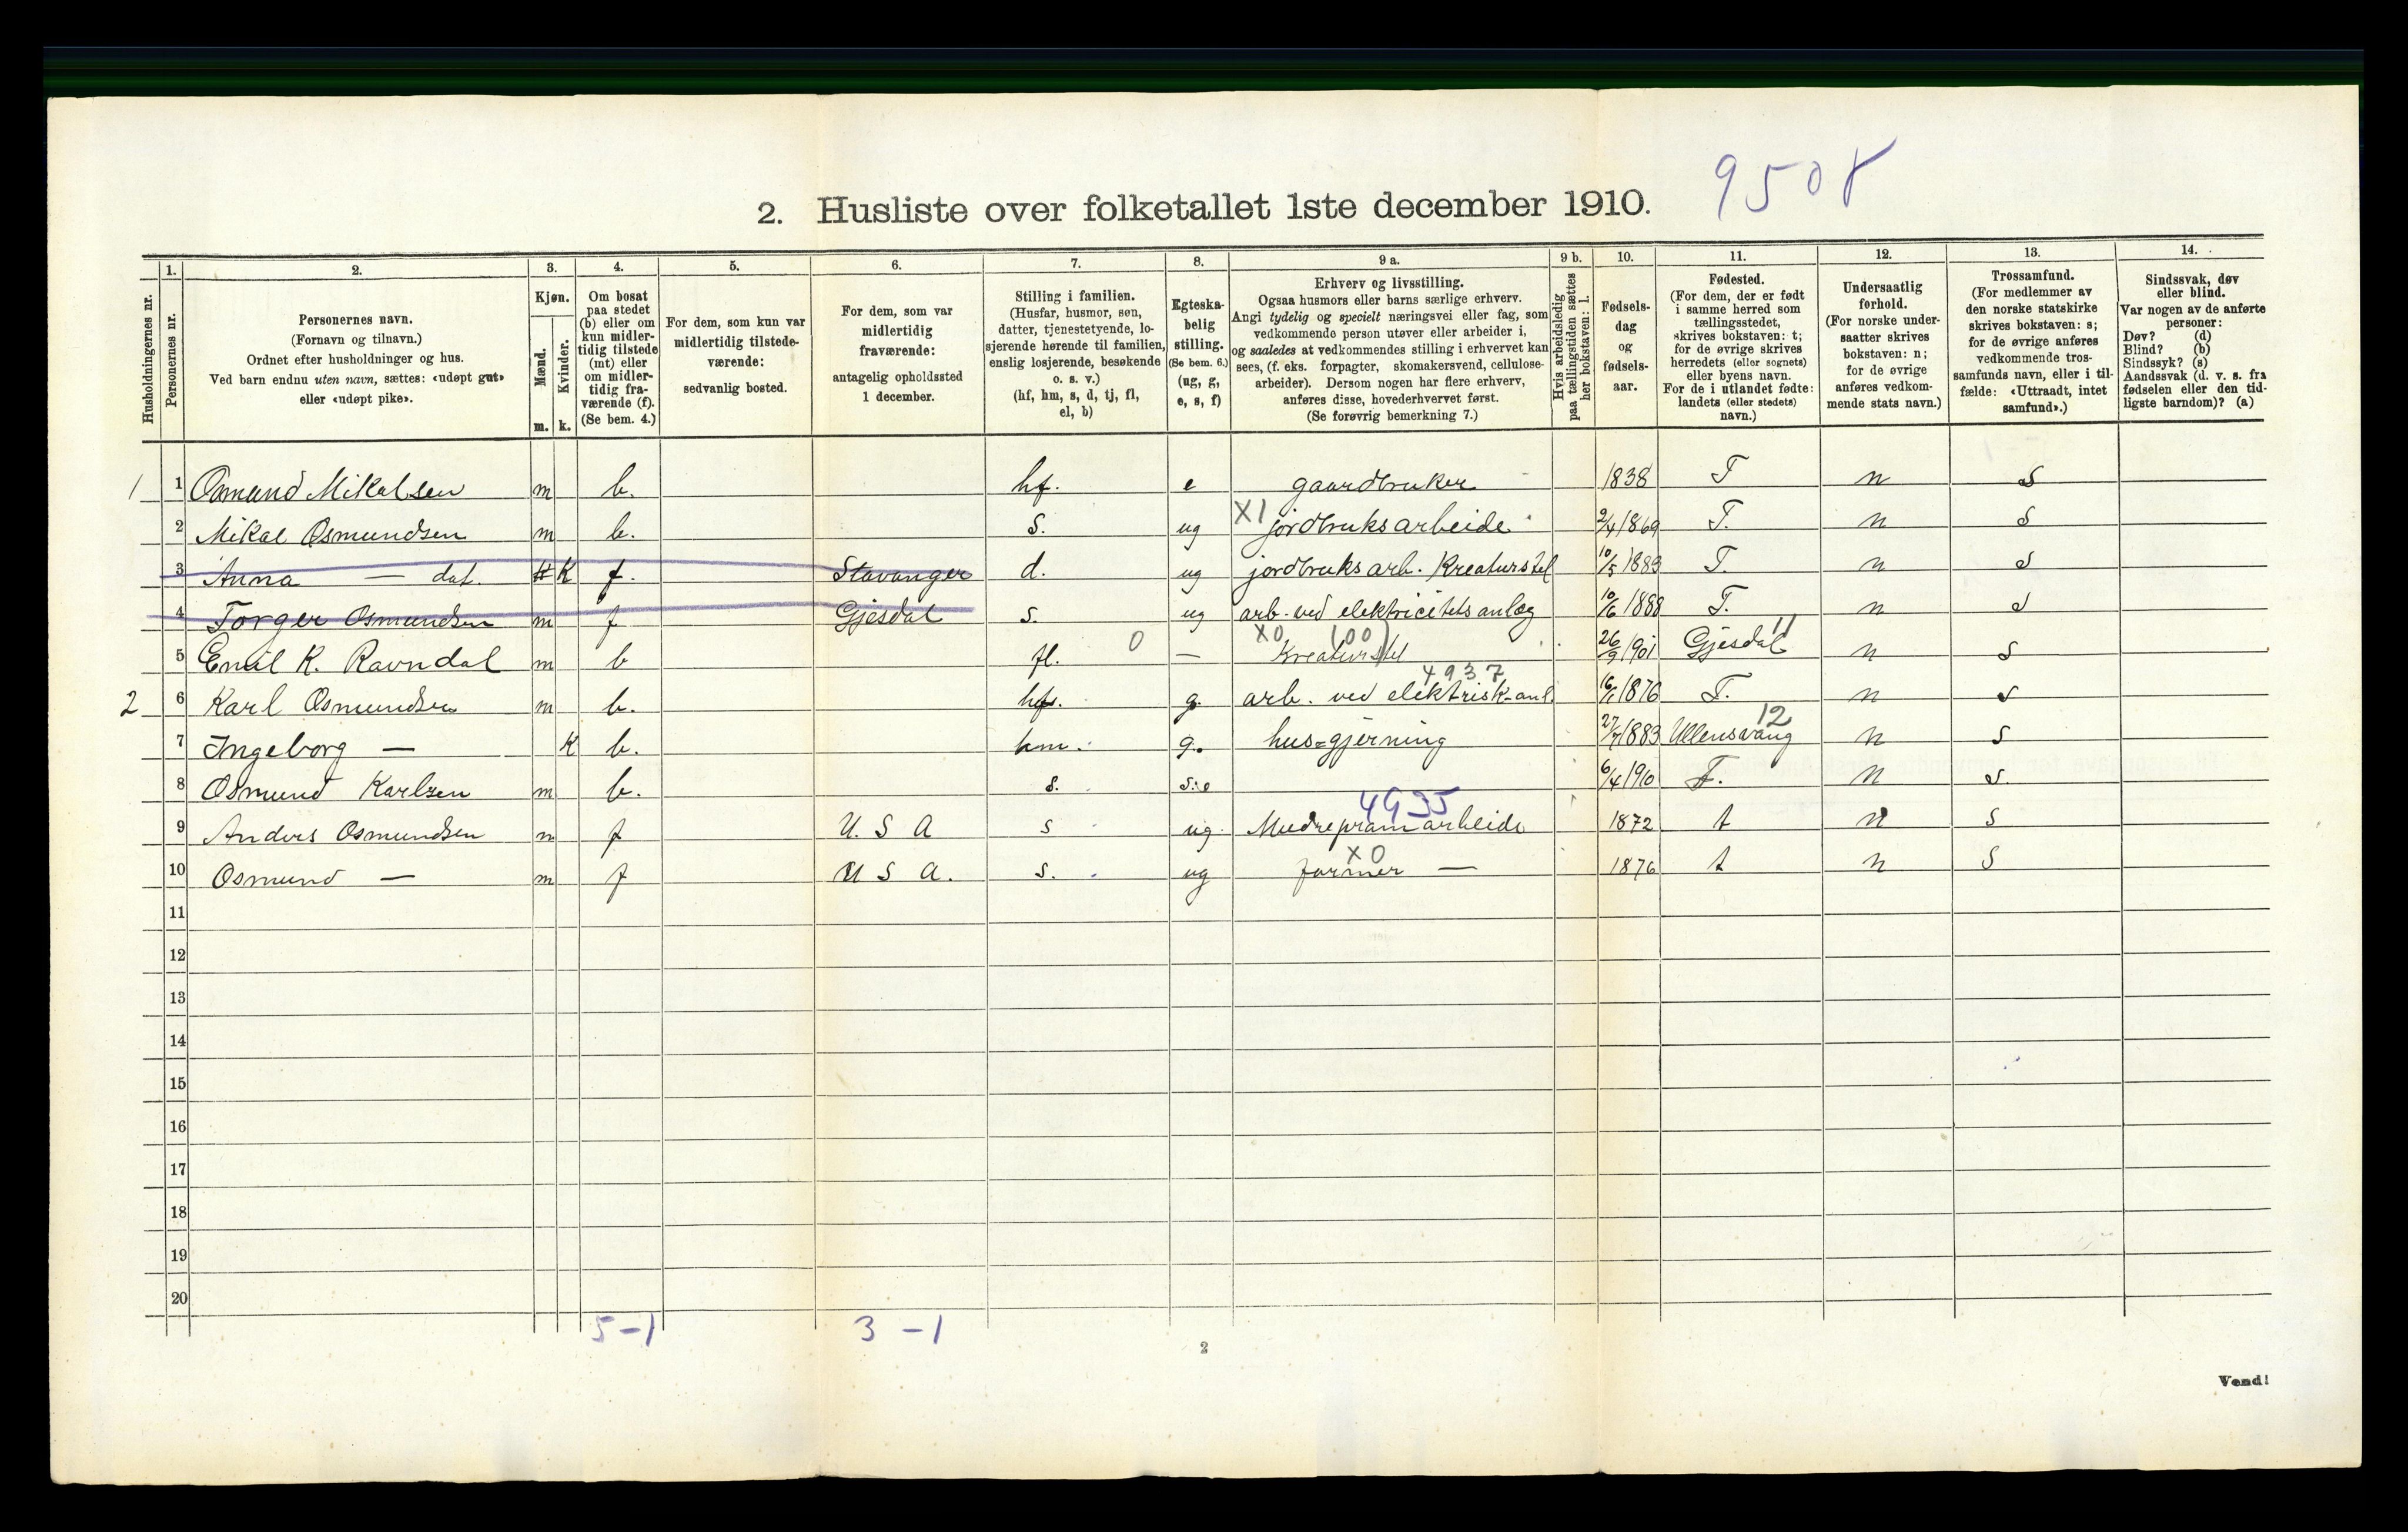 9508
2. Husliste over folketallet 1ste december 1910.
1. 2. 3. 4. 5. 6. 7. 8. 9 a. 9 b. 10. 11. 12. 13. 14.
Husholdningernes nr.
Personernes nr.
Personernes navn.
(Fornavn og tilnavn.)
Ordnet efter husholdninger og hus.
Ved barn endnu uten navn, sættes: «udøpt gut»
eller «udøpt pike».
Kjøn.
Mænd.
Kvinder.
m. k.
Om bosat
paa stedet
(b) eller om
kun midler-
tidig tilstede
(mt) eller
om midler-
tidig fra-
værende (f).
(Se bem. 4.)
For dem, som kun var
midlertidig tilstede-
værende:
sedvanlig bosted.
For dem, som var
midlertidig
fraværende:
antagelig opholdssted
1 december.
Stilling i familien.
(Husfar, husmor, søn,
datter, tjenestetyende, lo-
sjerende hørende til familien,
enslig losjerende, besøkende
o. s. v.)
(hf, hm, s, d, tj, fl,
el, b)
Egteska-
belig
stilling.
(Se bem. 6.)
(ug, g,
e, s, f)
Erhverv og livsstilling.
Ogsaa husmors eller barns særlige erhverv.
Angi tydelig og specielt næringsvei eller fag, som
vedkommende person utøver eller arbeider i,
og saaledes at vedkommendes stilling i erhvervet kan
sees, (f. eks. forpagter, skomakersvend, cellulose-
arbeider). Dersom nogen har flere erhverv,
anføres disse, hovederhvervet først.
(Se forøvrig bemerkning 7.)
Hvis arbeidsledig
paa tællingstiden sættes
her bokstaven: l.
Fødsels-
dag
og
fødsels-
aar.
Fødested.
(For dem, der er født
i samme herred som
tællingsstedet,
skrives bokstaven: t;
for de øvrige skrives
herredets (eller sognets)
eller byens navn.
For de i utlandet fødte:
landets (eller stedets)
navn.)
Undersaatlig
forhold.
(For norske under-
saatter skrives
bokstaven: n;
for de øvrige
anføres vedkom-
mende stats navn.)
Trossamfund.
(For medlemmer av
den norske statskirke
skrives bokstaven: s;
for de øvrige anføres
vedkommende tros-
samfunds navn, eller i til-
fælde: «Uttraadt, intet
samfund».)
Sindssvak, døv
eller blind.
Var nogen av de anførte
personer:
Døv? (d)
Blind? (b)
Sindssyk? (s)
Aandssvak (d. v. s. fra
fødselen eller den tid-
ligste barndom)? (a)
1 1 Osmund Mikalsen m b. hf. e gaardbruker 1838 T n S
2 Mikal Osmundsen m b. S. ug X1 jordbruksarbeide 2/4 1869 T. n S
3 Anna — dat. K f. Stavanger d. ug jordbruks arb. Kreaturstel 10/5 1883 T. n S
4 Torger Osmundsen m f Gjesdal s. ug arb. ved elektricitetsanlæg 10/6 1888 T. n S
5 Emil K. Ravndal m b fl. 0 — X0 (00) Kreaturstel 26/9 1901 Gjesdal 11 n S
2 6 Karl Osmundsen m b. hf. g. arb. ved elektrisk-anl. 4937 16/1 1876 T. n S
7 Ingeborg — K b. hm. g. hus=gjerning 27/7 1883 Ullensvang 12 n S
8 Osmund Karlsen m b. s. 6/4 1910 T. n S.
9 Anders Osmundsen m f U. S A s ug. 4935 1872 t n S
10 Osmund — m f U S A. s. ug X0 farmer — 1876 t n S
11
12
13
14
15
16
17
18
19
20
5-1 3-1
2
Vend!